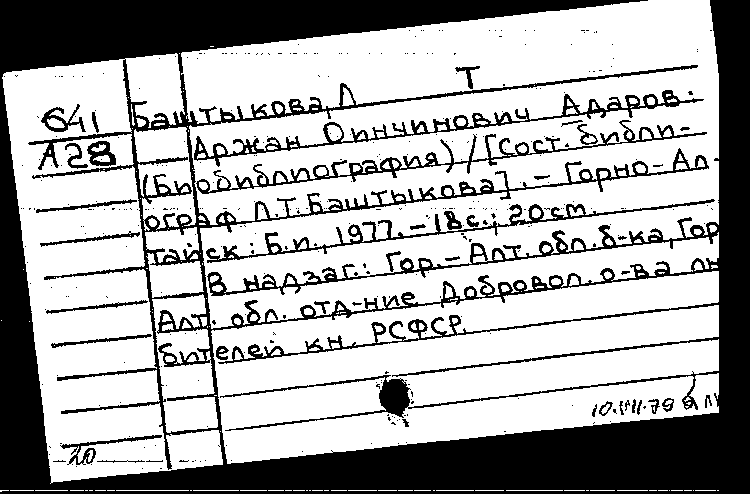 641 Баштыкова, Л Т
А28 Аржан Оинчинович Адаров:
(Биобиблиография) / [Сост. библи-
ограф Л.Т. Баштыкова]. - Горно-Ал-
тайск: Б.и., 1977. - 18 с.; 20 ст.
В надзаг.: Гор.-Алт. обл. б-ка, Гор
Алт. обл. отд-ние Добровол. о-ва лю
бителей кн. РСФСР.
10.VII.79
20